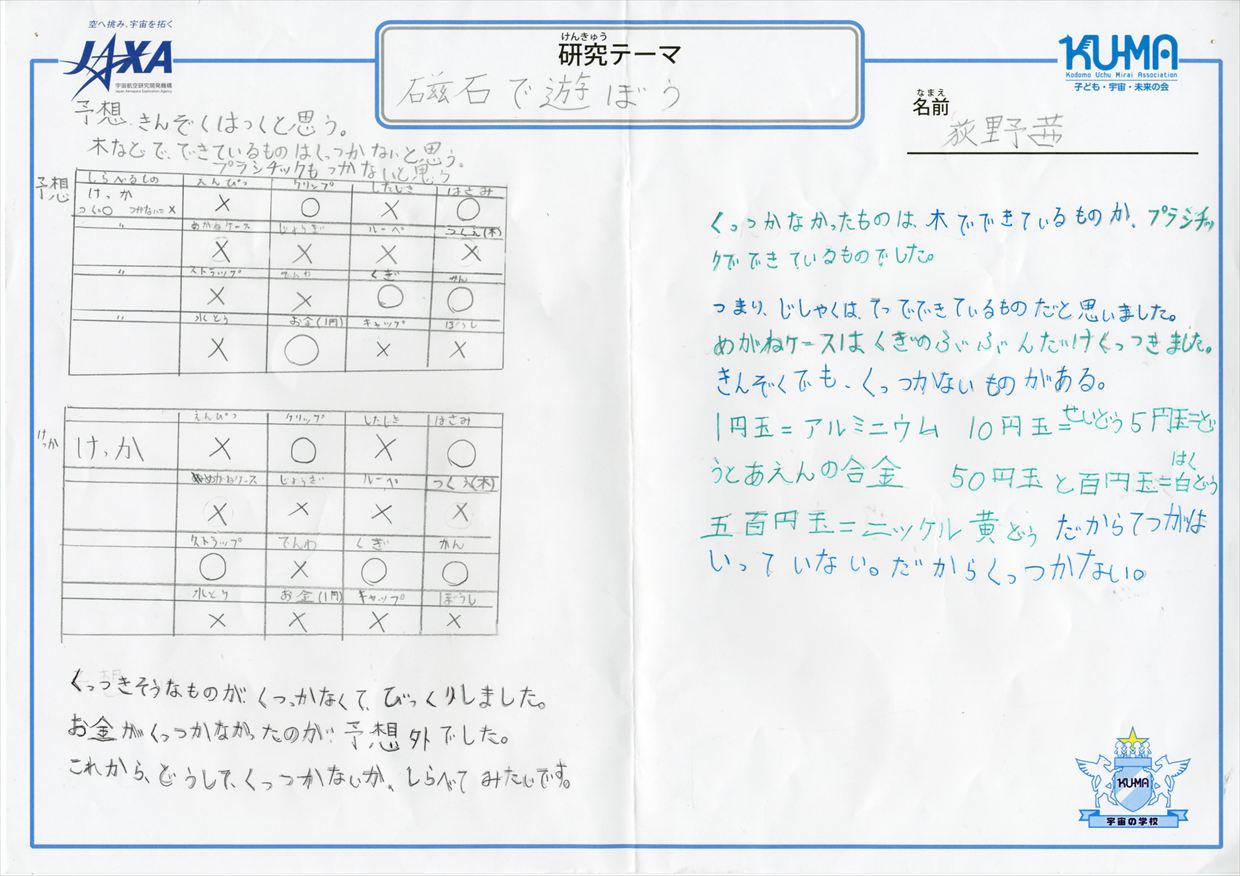 空へ挑み、宇宙を拓く
JAXA
宇宙航空研究開発機構
Japan Aerospace Exploration Agency
けんきゅう
研究テーマ
磁石で遊ぼう
KU-MA
Kodomo Uchu Mirai Association
子ども・宇宙・未来の会
なまえ
名前
荻野茜
予想 きんぞくはつくと思う。
木などで、できているものはくっつかないと思う。
プラシチックもつかないと思う
予想
しらべるもの えんぴつ クリップ したじき はさみ
けっか × ○ × ○
つく=○ つかない=×
〃 めがねケース じょうぎ ルーペ つくえ(木)
× × × ×
〃 ストラップ でんわ くぎ かん
× × ○ ○
〃 水とう お金(1円) キャップ ぼうし
× ○ × ×
けっか
えんぴつ クリップ したじき はさみ
けっか × ○ × ○
めがねケース じょうぎ ルーペ つくえ(木)
× × × ×
ストラップ でんわ くぎ かん
○ × ○ ○
水とう お金(1円) キャップ ぼうし
× × × ×
くっつきそうなものが、くっつかなくて、びっくりしました。
お金がくっつかなかったのが予想外でした。
これから、どうして、くっつかないか、しらべてみたいです。
くっつかなかったものは、木でできているものか、プラシチッ
クでできているものでした。
つまり、じしゃくは、てつでできているものだと思いました。
めがねケースは、くぎのぶぶんだけくっつきました。
きんぞくでも、くっつかないものがある。
1円玉=アルミニウム 10円玉=せいどう 5円玉=ど
うとあえんの合金 50円玉と百円玉=白どう
はく
五百円玉=ニッケル黄どう だからてつがは
いっていない。だからくっつかない。
KU-MA
宇宙の学校